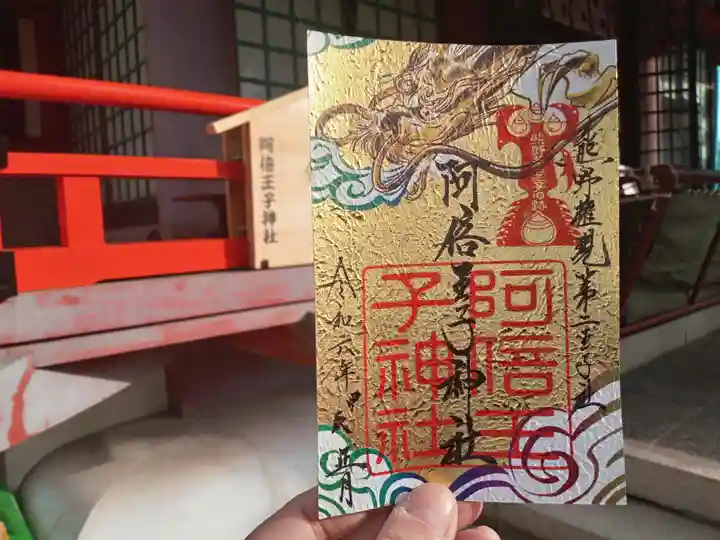 熊野権現第二王子社
阿倍王子神社
令和六年甲辰正月
阿倍王
子神社
阿倍王子神社